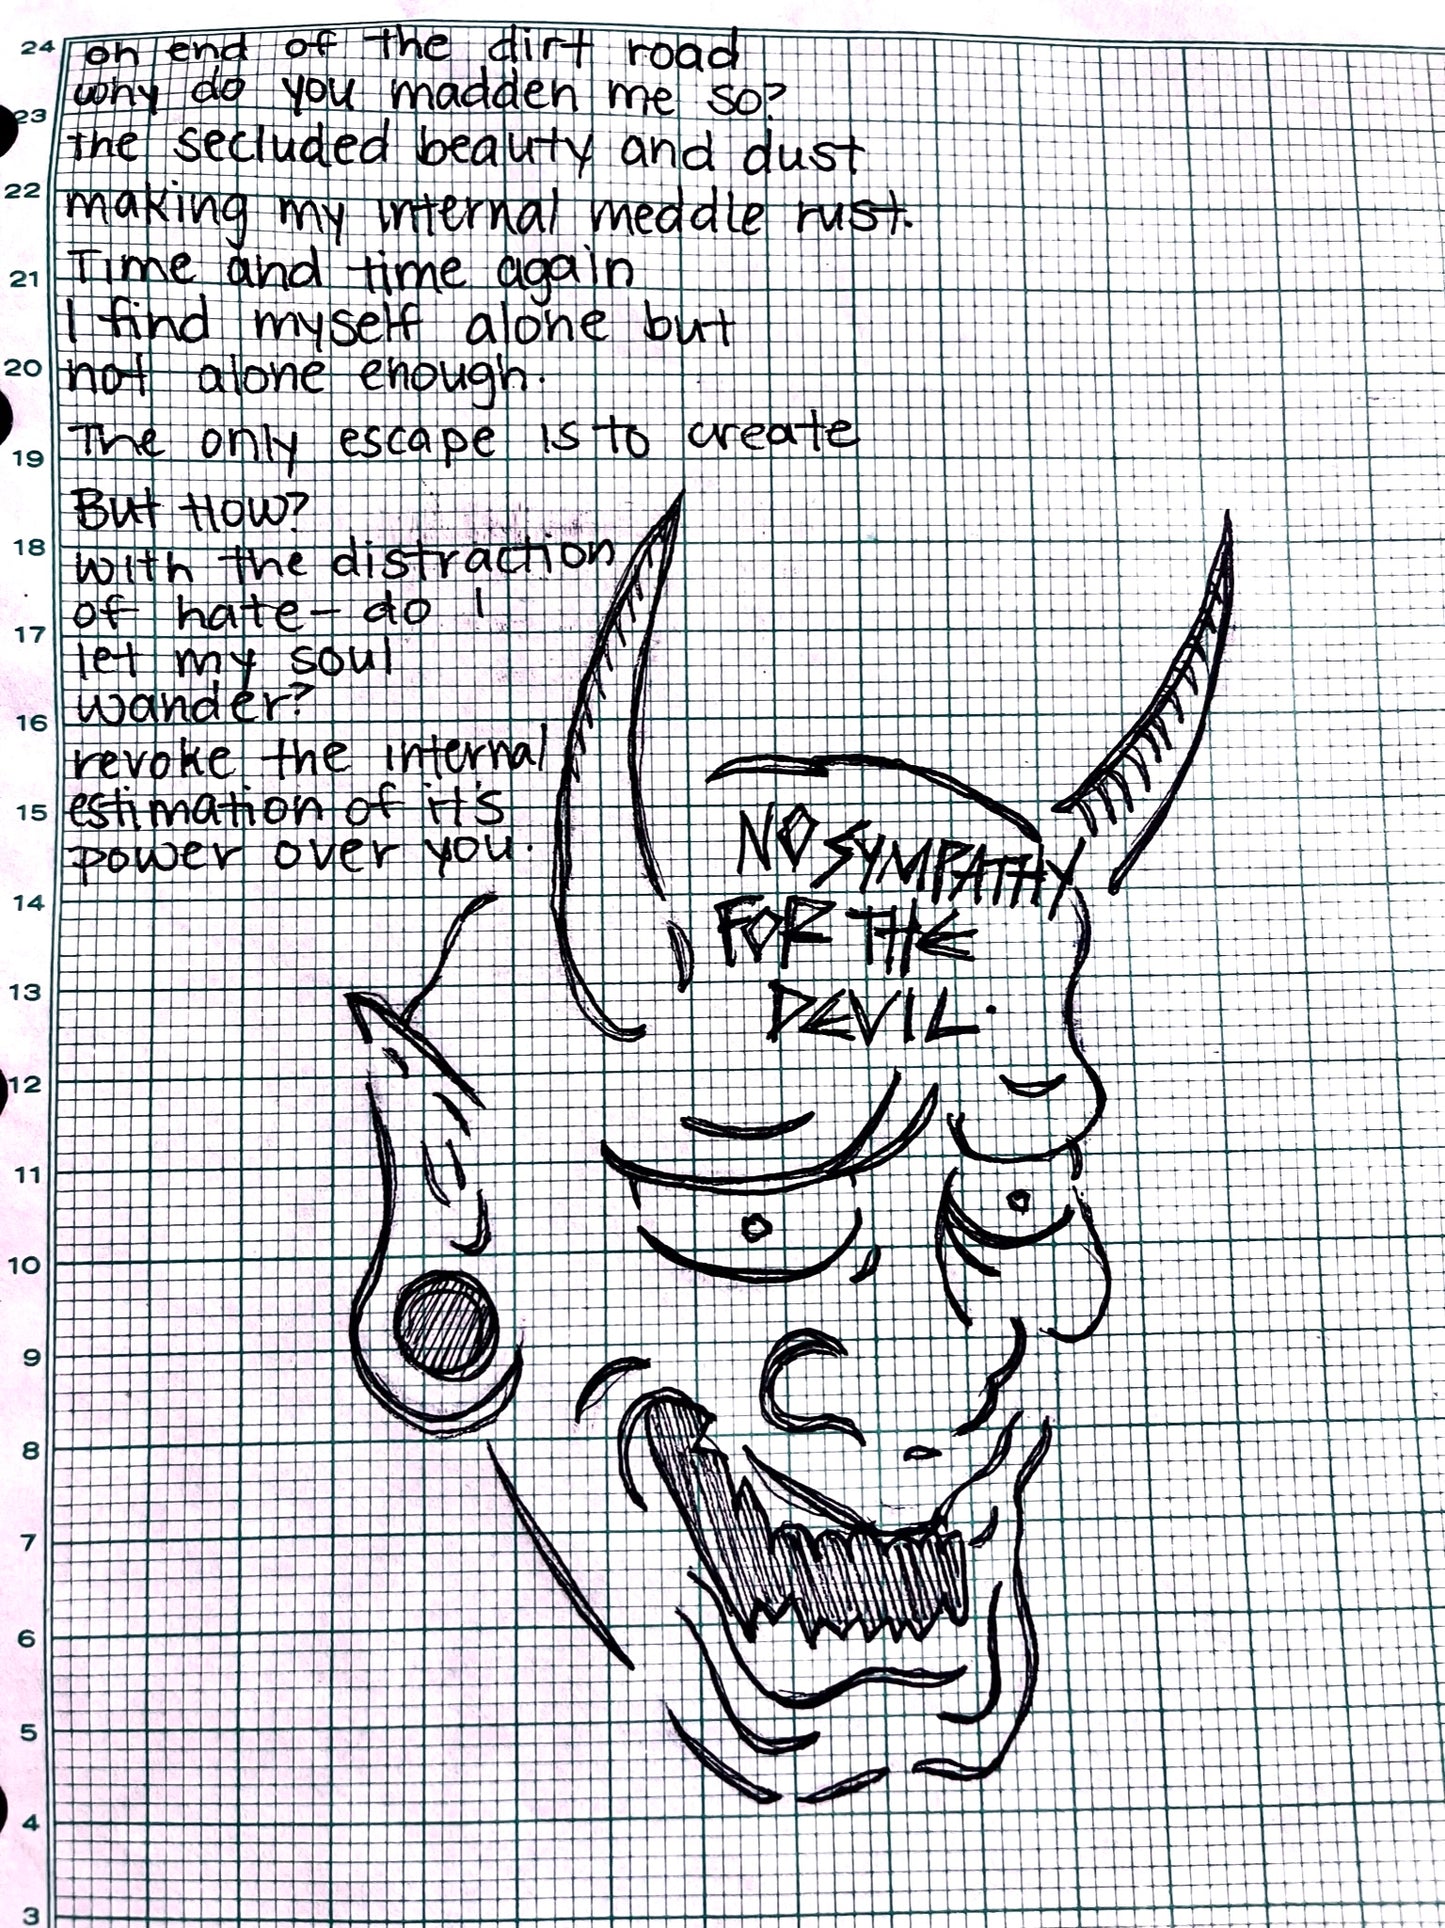 24
oh end of the dirt road
why do you madden me so?
23
the secluded beauty and dust
22
making my internal meddle rust.
Time and time again
21
I find myself alone but
20
not alone enough.
The only escape is to create
19
But How?
18
with the distraction
of hate - do I
17
let my soul
wander?
16
revoke the internal
15
estimation of it's
power over you.
NO SYMPATHY
14
FOR THE
13
DEVIL.
12
11
10
9
8
7
6
5
4
3